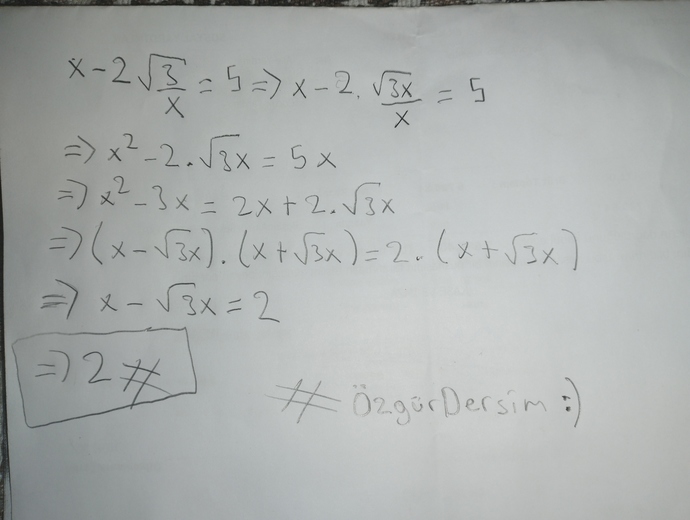 x - 2√(3/x) = 5 ⇒ x - 2 . √3x/x = 5
⇒ x² - 2 . √3x = 5x
⇒ x² - 3x = 2x + 2 . √3x
⇒ (x - √3x) . (x + √3x) = 2 . (x + √3x)
⇒ x - √3x = 2
⇒ 2 #
# ÖzgürDersim :)